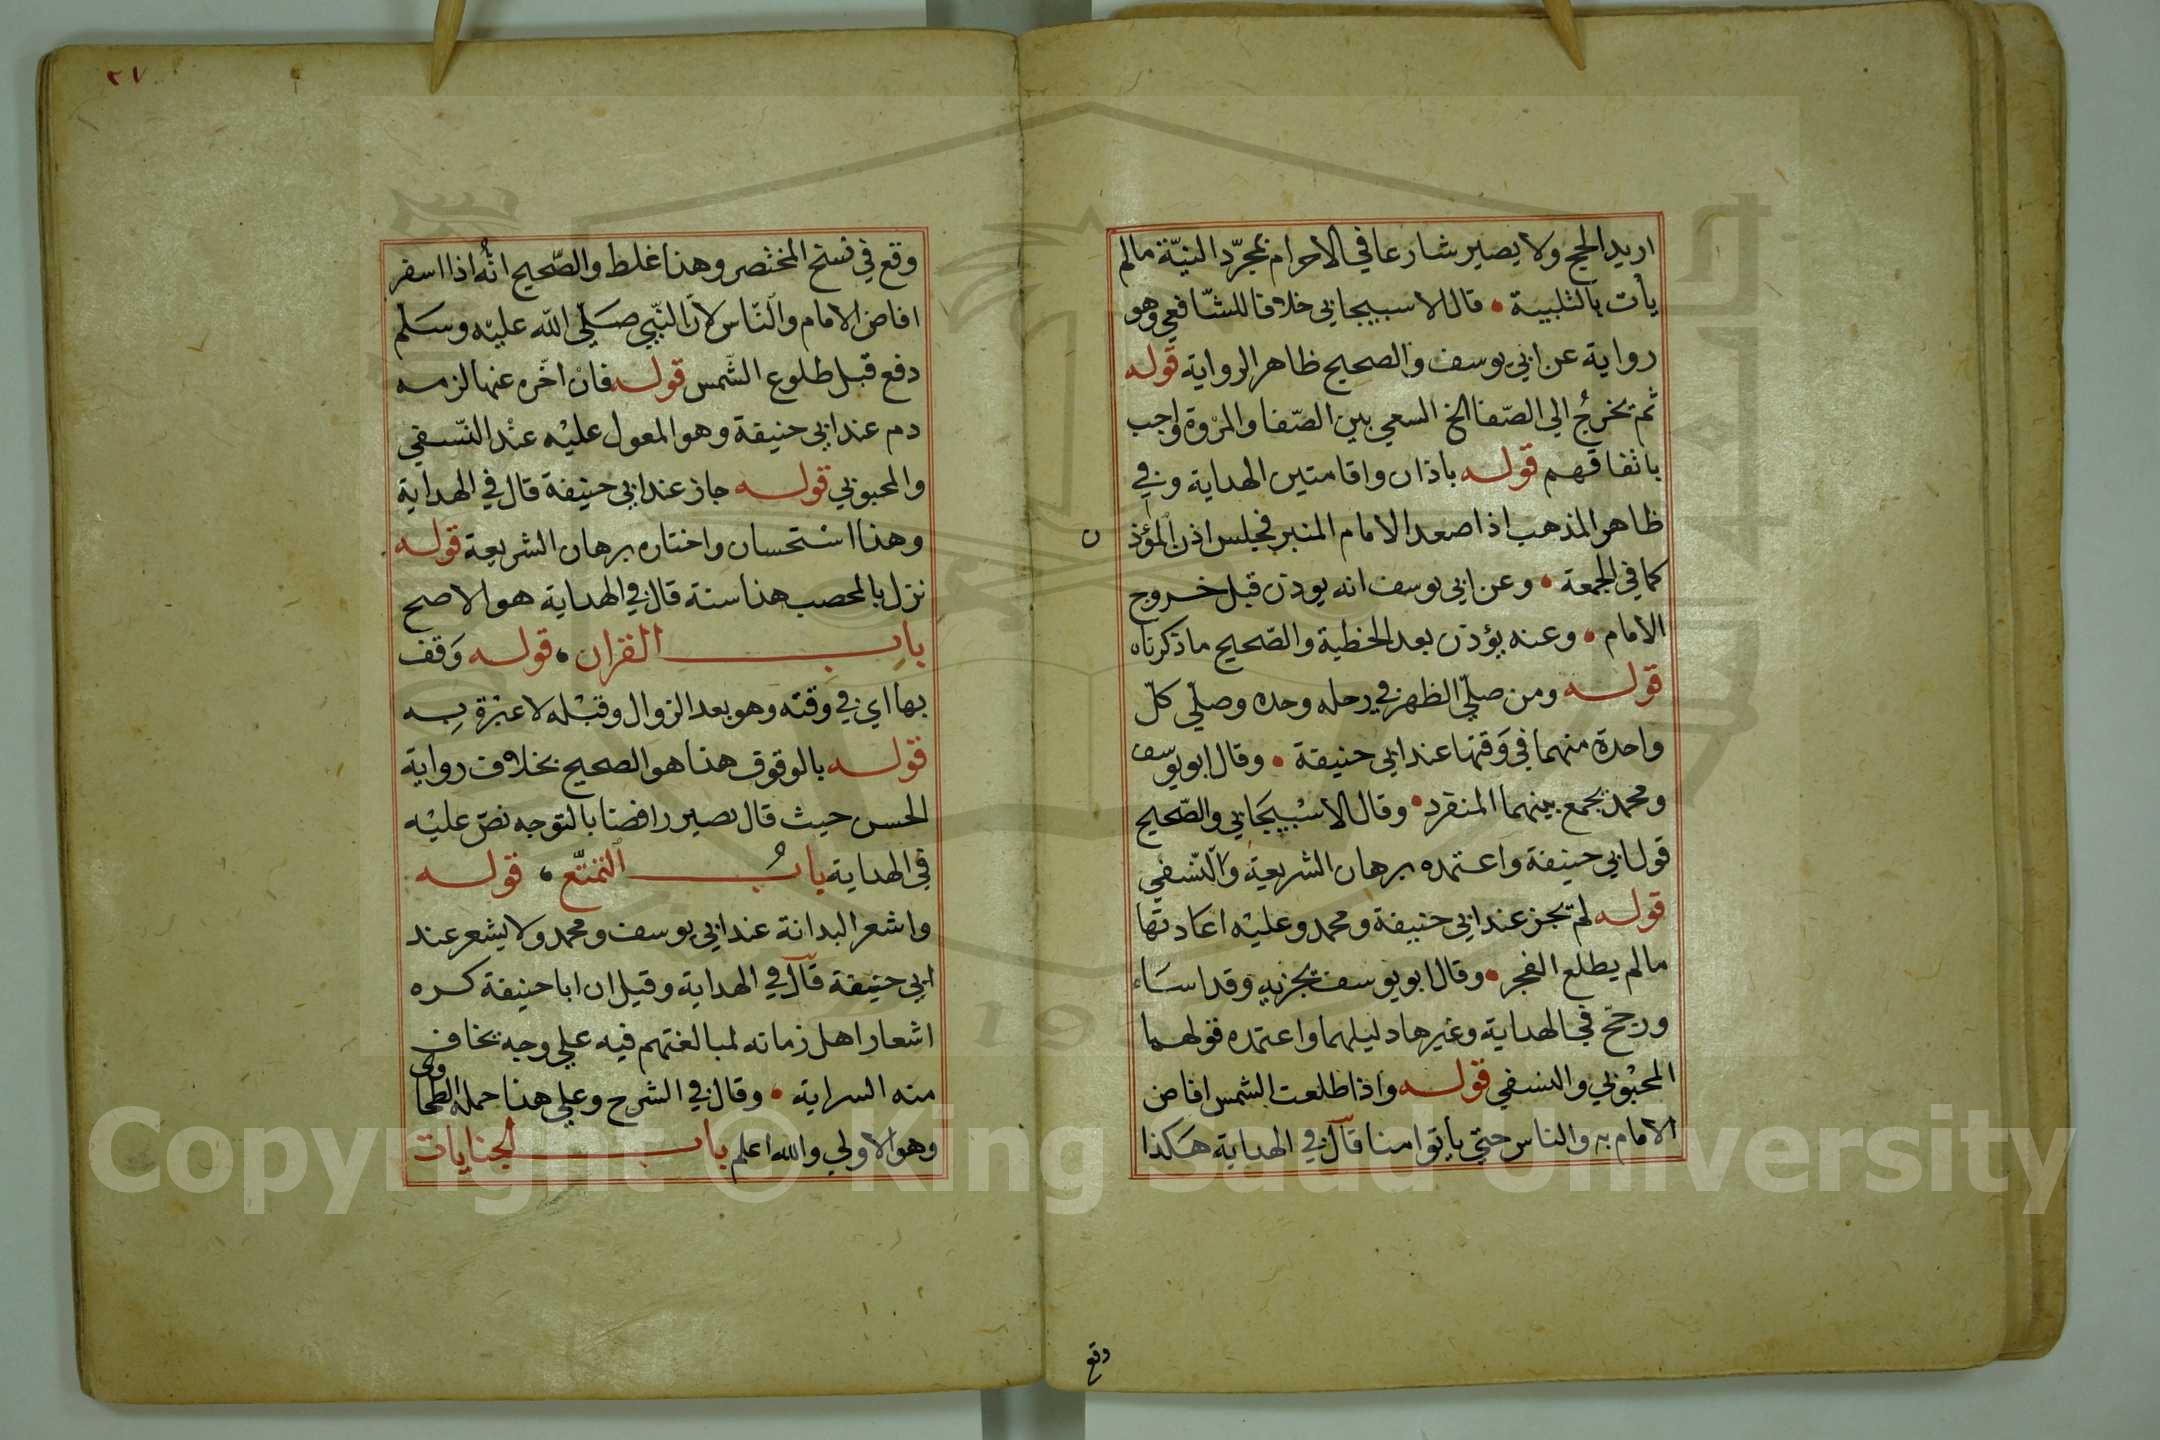 اريد الحج ولا يصير شارعا في الاحرام بمجرّد النيّة مالم
يأت بالتلبية • قال الاسبيجابي خلافا للشّافعي وهو
رواية عن ابي يوسف والصحيح ظاهر الرواية قوله
ثم يخرجُ الي الصّفا الخ السعي بين الصّفا والمرْوة واجب
باتفاقهم قوله باذان واقامتين الهداية وفي
ظاهر المذهب اذا صعد الامام المنبر فجلس اذن المؤذ
ن
كما في الجمعة • وعن ابي يوسف انه يوذن قبل خروج
الامام • وعنه يؤذن بعد الخطبة والصّحيح ما ذكرناه
قوله ومن صلّي الظهر في رحله وحده وصلّي كلّ
واحدة منهما في وَقتها عند ابي حنيفة • وقال ابو يوسف
ومحمد يجمع بينهما المنفرد • وقال الاسْبيجَابي والصّحيح
قول ابي حنيفة واعتمده برهان الشريعة والنّسفي
قوله لم يجز عند ابي حنيفة ومحمد وعليْه اعادتها
مالم يطلع الفجر • وقال ابو يوسف يجزيه وقد اسَاء
ورجّح في الهداية وغيرها دليلهما واعتمده قولهما
المحبُوبي والنسفي قوله واذا طلعت الشمس افاض
الامام به والناس حتي ياتوا منا قال في الهداية هَكذا
وقع
٢٧
وقع في نسخ المختصر وهذا غلط والصّحيح انّه اذا اسفر
افاض الامام والنّاس لانّ النّبي صَلّي الله عليْه وسَلّم
دفع قبل طلوع الشّمس قوله فانْ اخّره عنها لزمه
دم عند ابي حنيفة وهو المعول عليْه عنْد النّسفي
والمحبوبي قوله جاز عند ابي حنيفة قال في الهداية
وهذا اسْتحسان واختاره برهان الشريعة قوله
نزل بالمحصب هذا سنة قال في الهداية هو الاصح
باب القران ، قوله وَقف
بها اي في وقته وهو بعد الزوال وقبْله لا عبْرة بِه
قوله بالوقوف هذا هو الصحيح بخلاف رواية
الحسن حيث قال يصير رافضا بالتوجه نصّ عليْه
في الهداية بابُ التمتّع ، قوله
واشعر البدانة عند ابي يوسف ومحمد ولا يشعر عند
ابي حنيفة قال في الهداية وقيل ان ابا حنيفة كره
اشعار اهل زمانه لمبالغتهم فيه علي وجه يخاف
منه السراية • وقال في الشرح وعلي هذا حمله الطحاوي
وهو الاولي والله اعلم باب الجنايات
Copyright © King Saud University